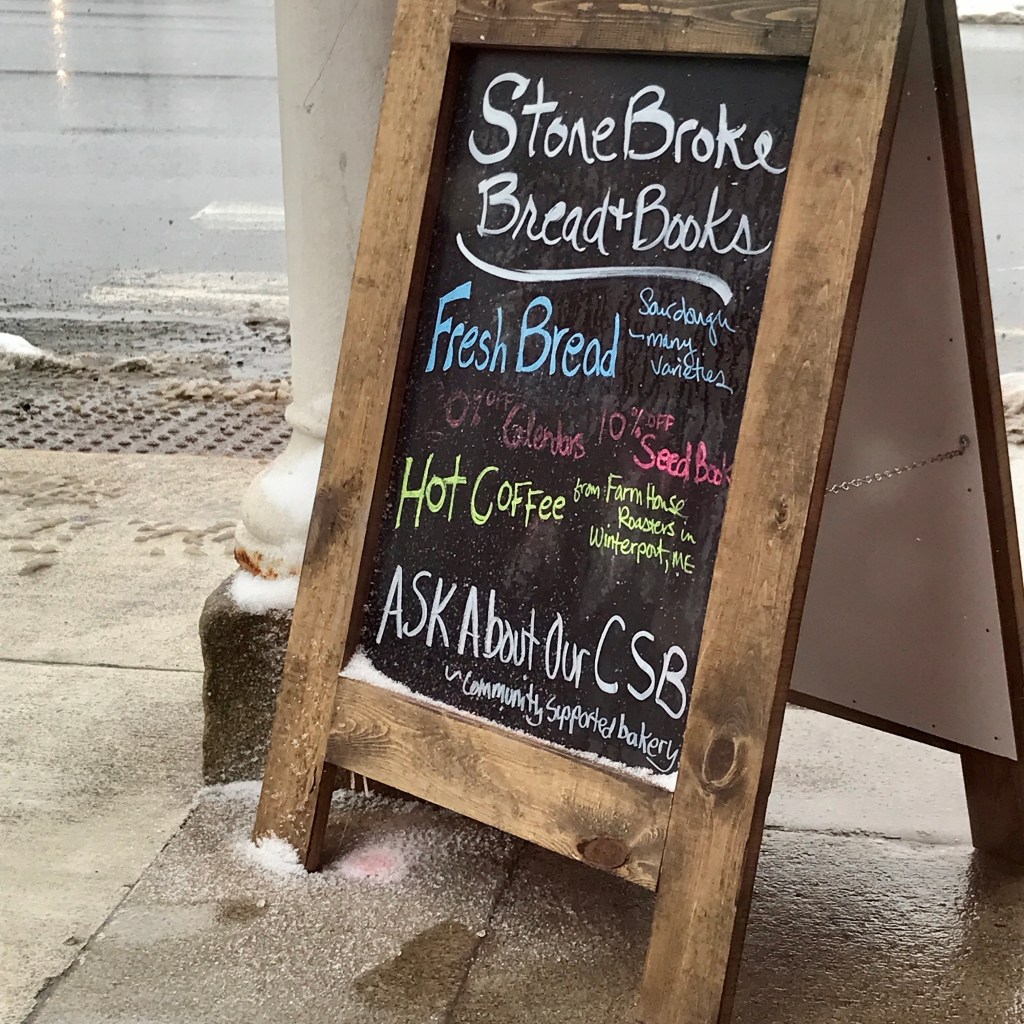 StoneBroke
Bread + Books
Fresh Bread
Sourdough
~many
varieties
0% OFF
Calendars
10% OFF
Seed Book
Hot Coffee
from Farm House
Roasters in
Winterport, ME
ASK About Our CSB
~Community supported bakery